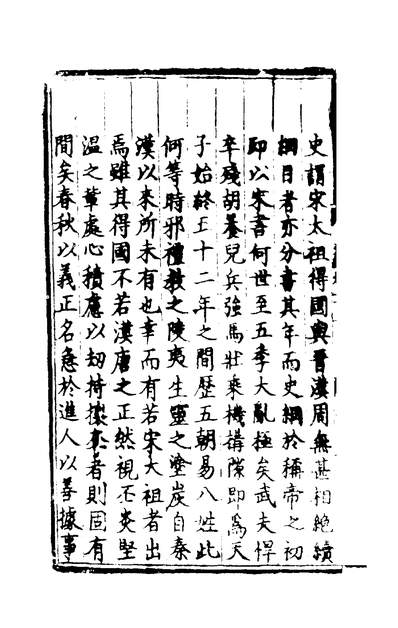 史謂宋太祖得國與晉漢周無甚相絶續
綱目者亦分書其年而史綱於稱帝之初
即以宋書何世至五季大亂極矣武夫悍
卒殘胡養兒兵強馬壯乘機搆隙即為天
子始終五十二年之間歴五朝易八姓此
何等時邪禮教之陵夷生靈之塗炭自秦
漢以來所未有也幸而有若宋太祖者出
焉雖其得國不若漢唐之正然視丕炎堅
温之軰處心積慮以刼持攘奪者則固有
間矣春秋以義正名急於進人以善據事